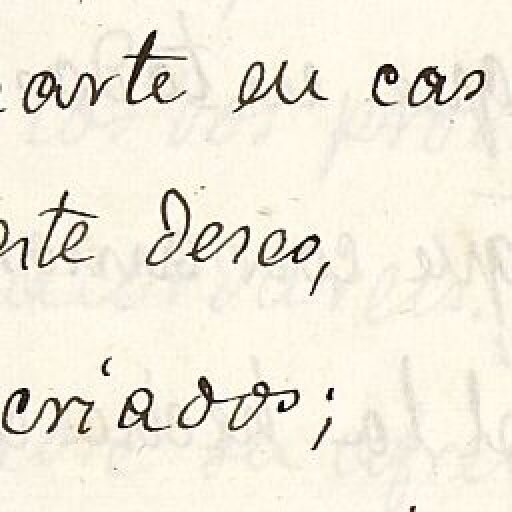 arte en cas
nte deseo,
criados;